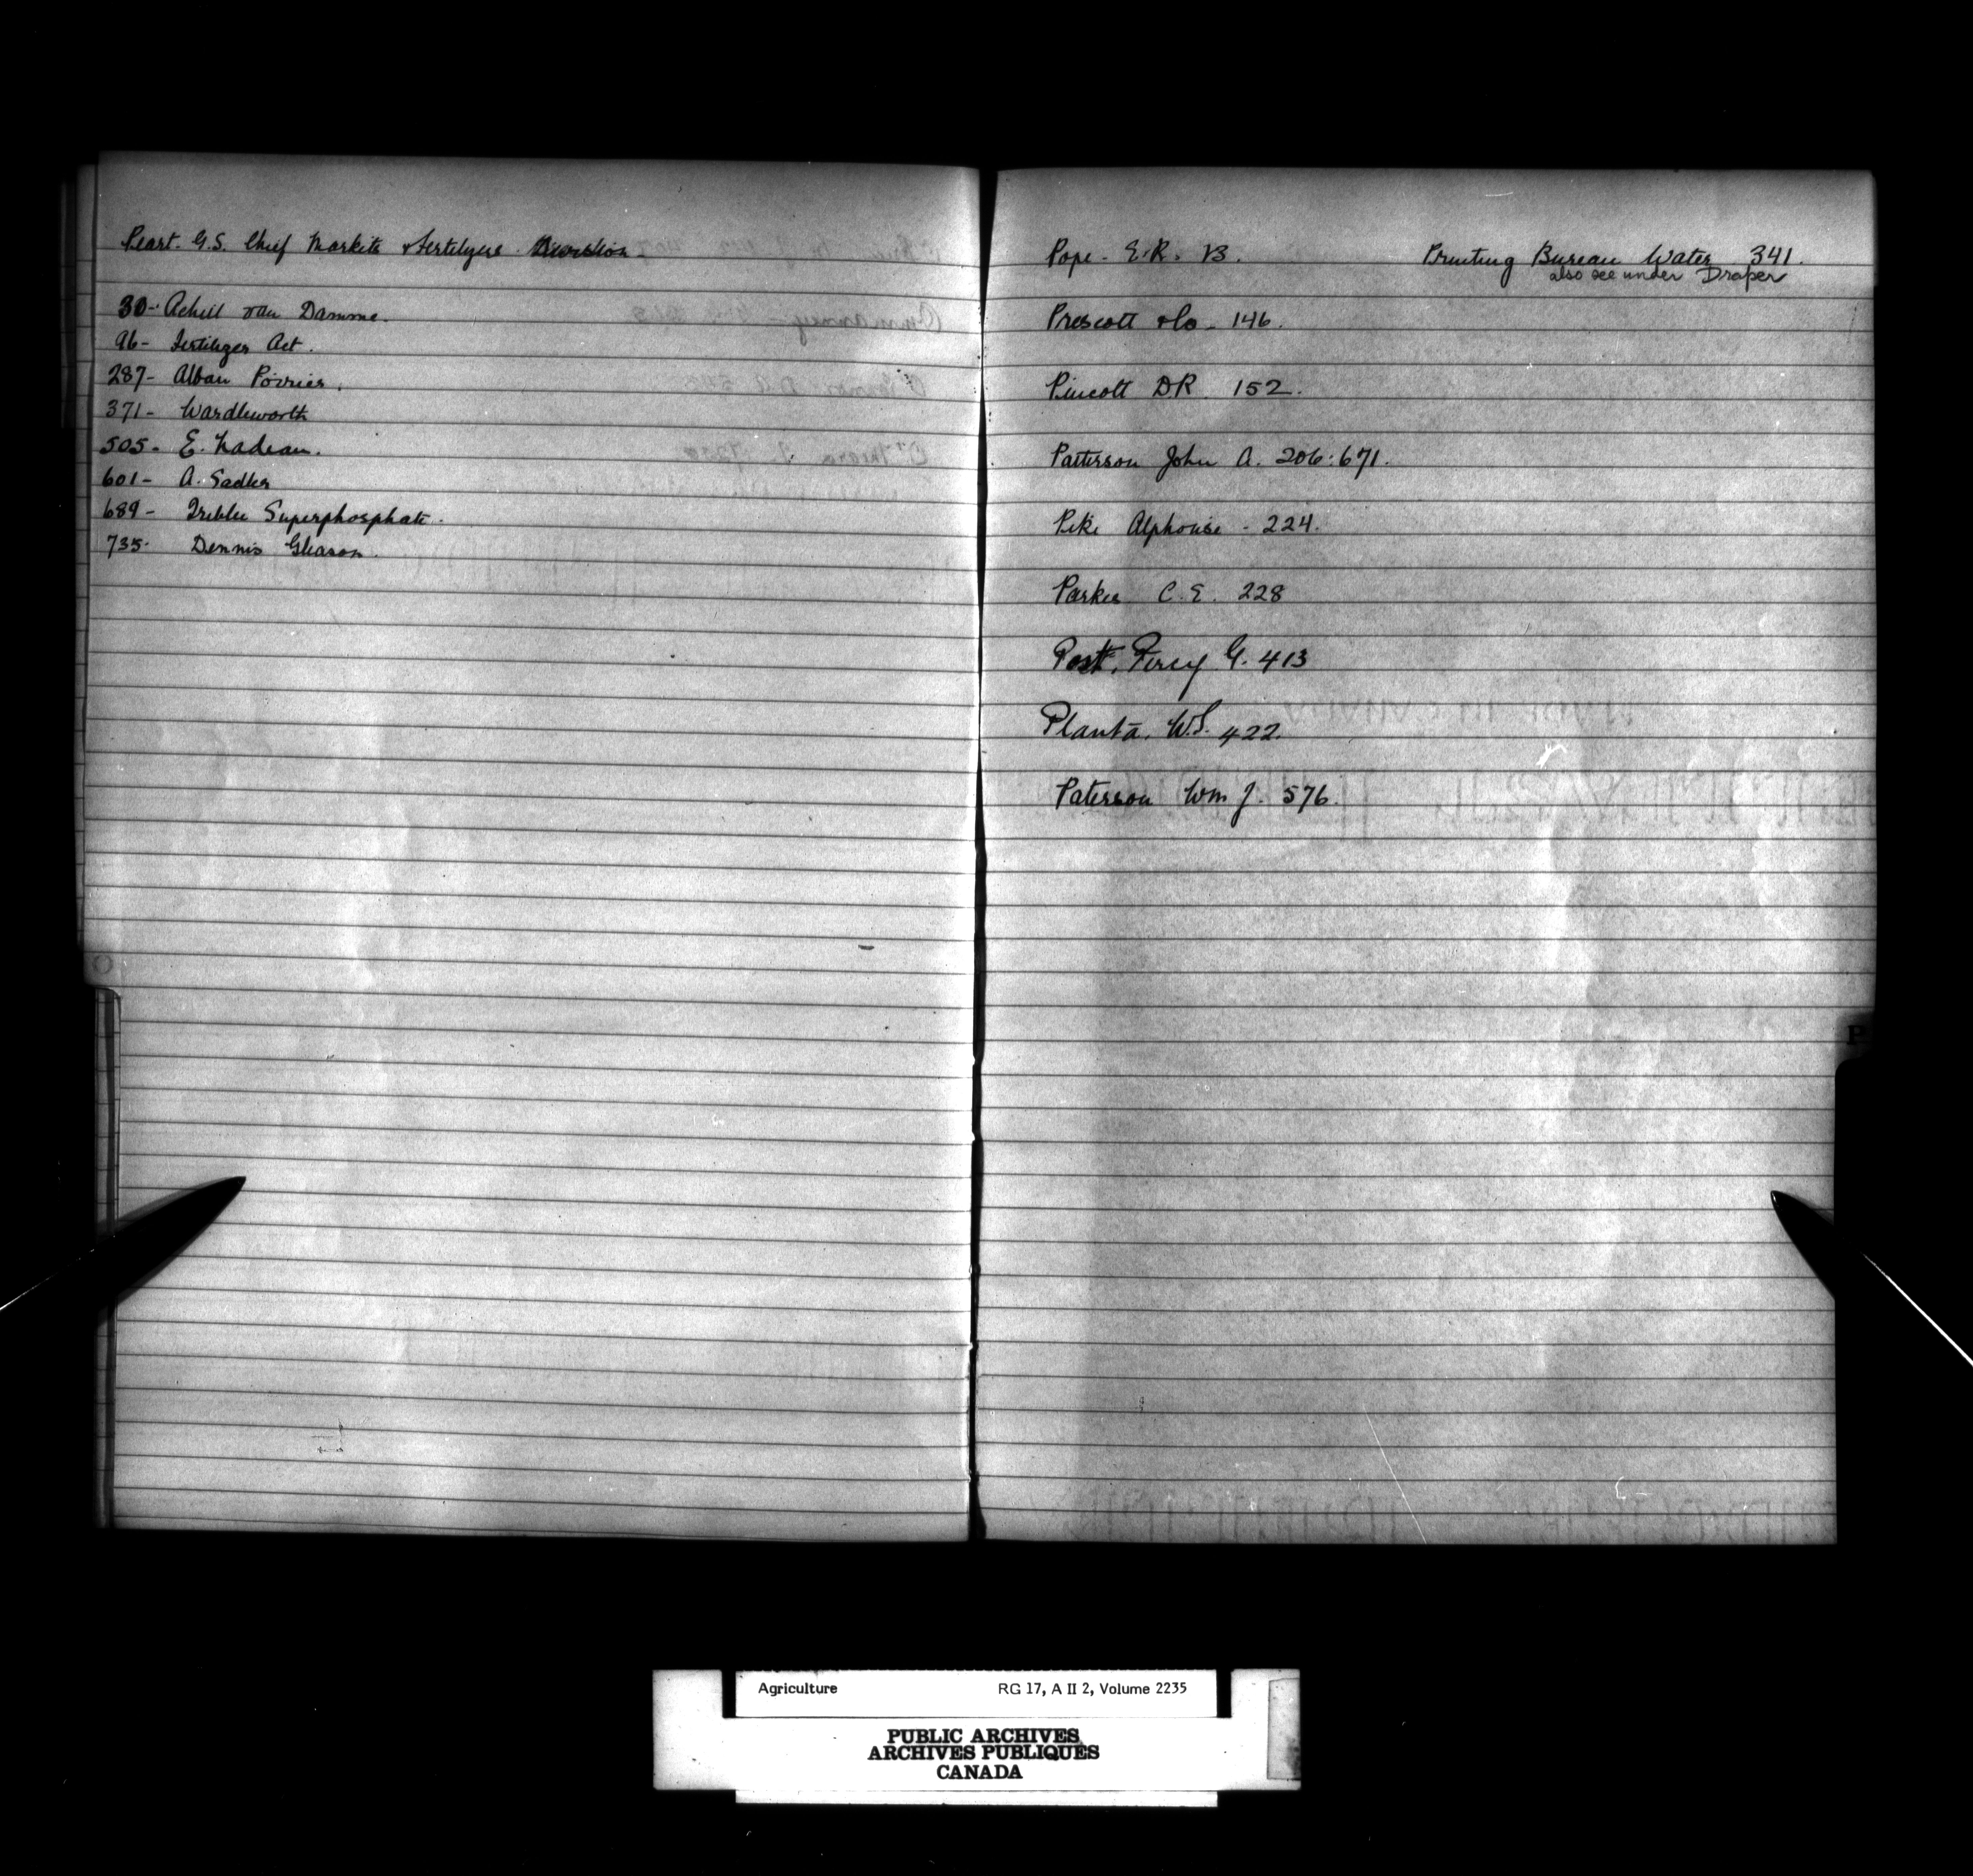 Peart. G.S. Chief Markets & Fertilyers Division -
30- Achill van Damme.
96- Fertilizer Act.
287- Alban Poirier.
371- Wardleworth
505- E. Nadeau.
601- A. Sadler
689- Treble Superphosphate.
735- Dennis Gleason.
Pope - E.R. 13.
Printing Bureau Water 341.
also see under Draper
Prescott & Co - 146.
Pincott DR. 152.
Patterson John A. 206:671.
Piki Alphonse - 224.
Parker C.E. 228
Post, Percy G. 413
Planta, W.S. 422.
Paterson Wm J. 576.
P
Agriculture RG 17, A II 2, Volume 2235
PUBLIC ARCHIVES
ARCHIVES PUBLIQUES
CANADA